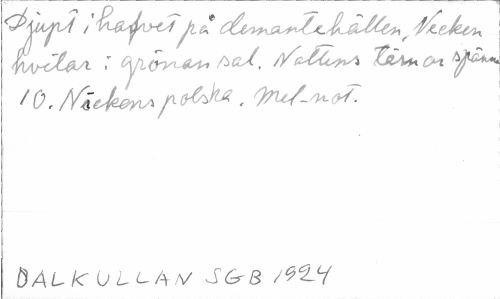 Djupt i hafvet på demantehällen, Necken
hvilar i grönan sal. Nattens tärnor spänna
10. Neckens polska. Mel-not.
DALKULLAN SGB 1924